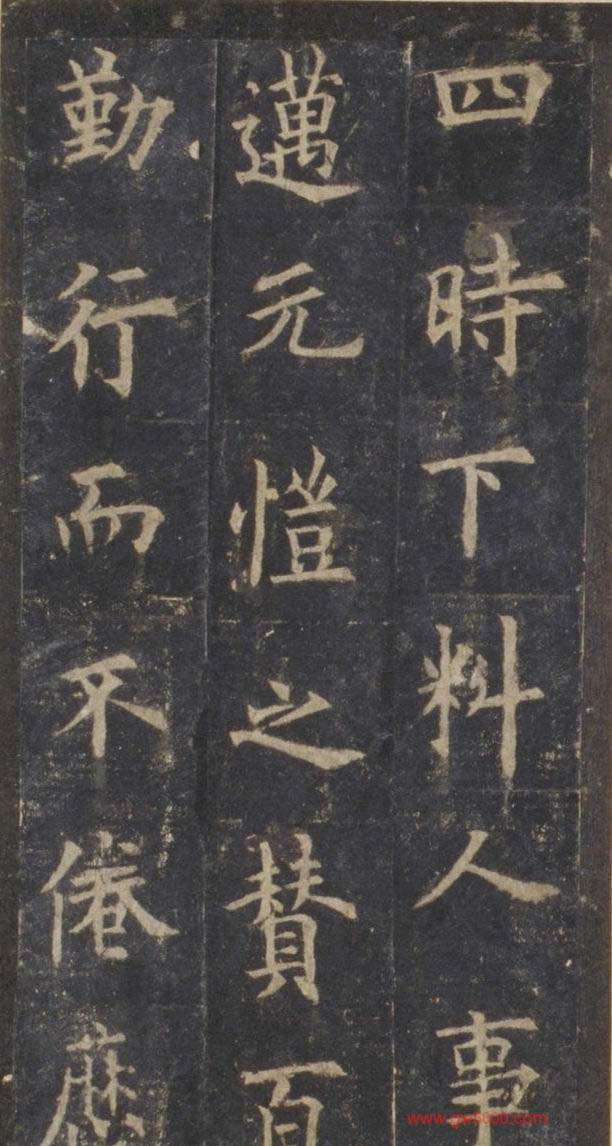 四時下料人事
邁元愷之賛百
勤行而不倦